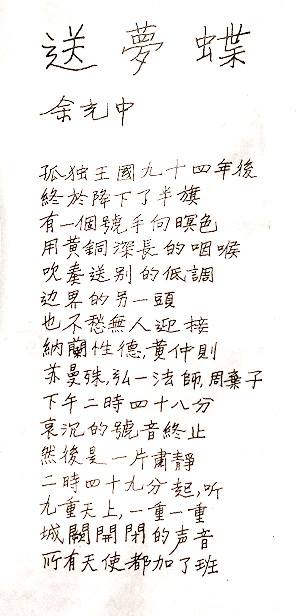 送夢蝶
余光中
孤独王國九十四年後
終於降下了半旗
有一個號手向暝色
用黄銅深長的咽喉
吹奏送别的低調
边界的另一頭
也不愁無人迎接
納蘭性德,黄仲則
苏曼殊,弘一法師,周棄子
下午二時四十八分
哀沉的號音終止
然後是一片肅靜
二時四十九分起,听
九重天上,一重一重
城闕開閉的声音
所有天使都加了班